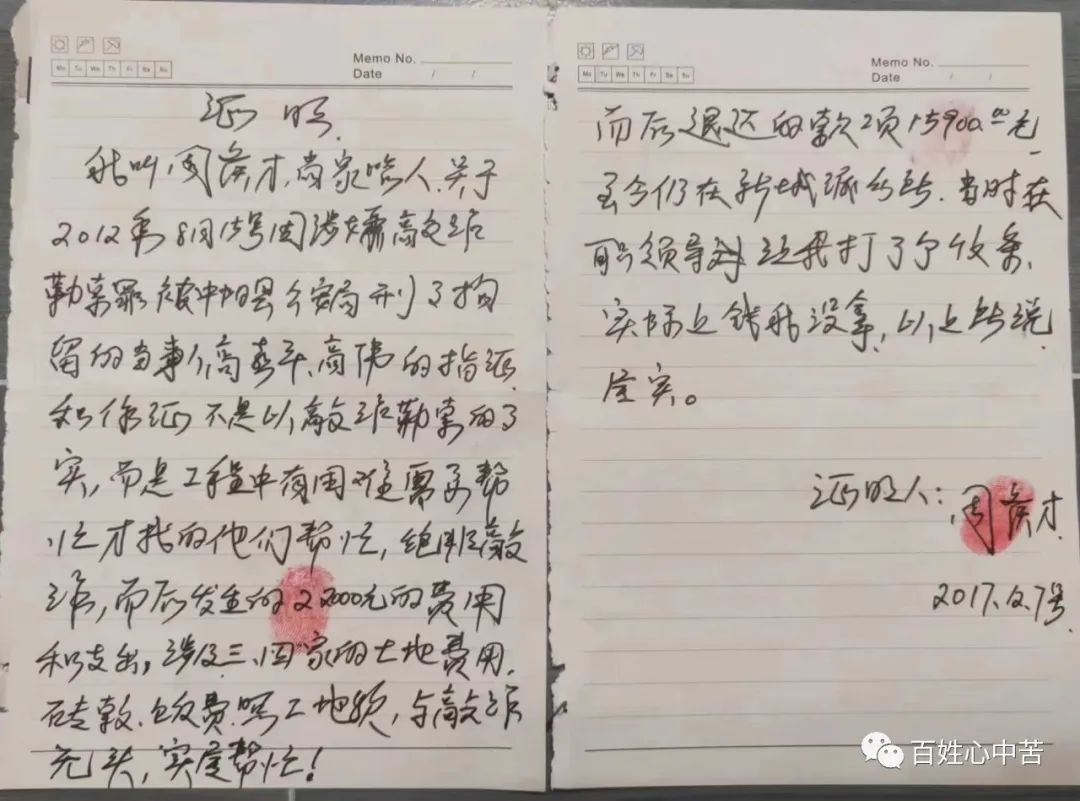 Memo No.
Date / /
Mo Tu We Th Fr Sa Su
证明
我叫周彦才,尚家哈人.关于
2012年8月15号因涉嫌敲诈
勒索罪被中阳县公安局刑事拘
留的当事人高 平、高伟的指证
和作证不是以敲诈勒索的事
实,而是工程中有困难需要帮
忙才找的他们帮忙,绝非敲
诈,而后发生的22000元的费用
和支出,涉及三、四家的土地费用.
砖款.饭费.等工地款,与敲诈
无关,实属帮忙!
Memo No.
Date / /
Mo Tu We Th Fr Sa Su
而后退还的款项15900.00元
至今仍在 城派出所.当时在
职领导 让我打了个收条,
实际上钱我没拿,以上所说
属实。
证明人:周彦才
2017.12.7号
百姓心中苦